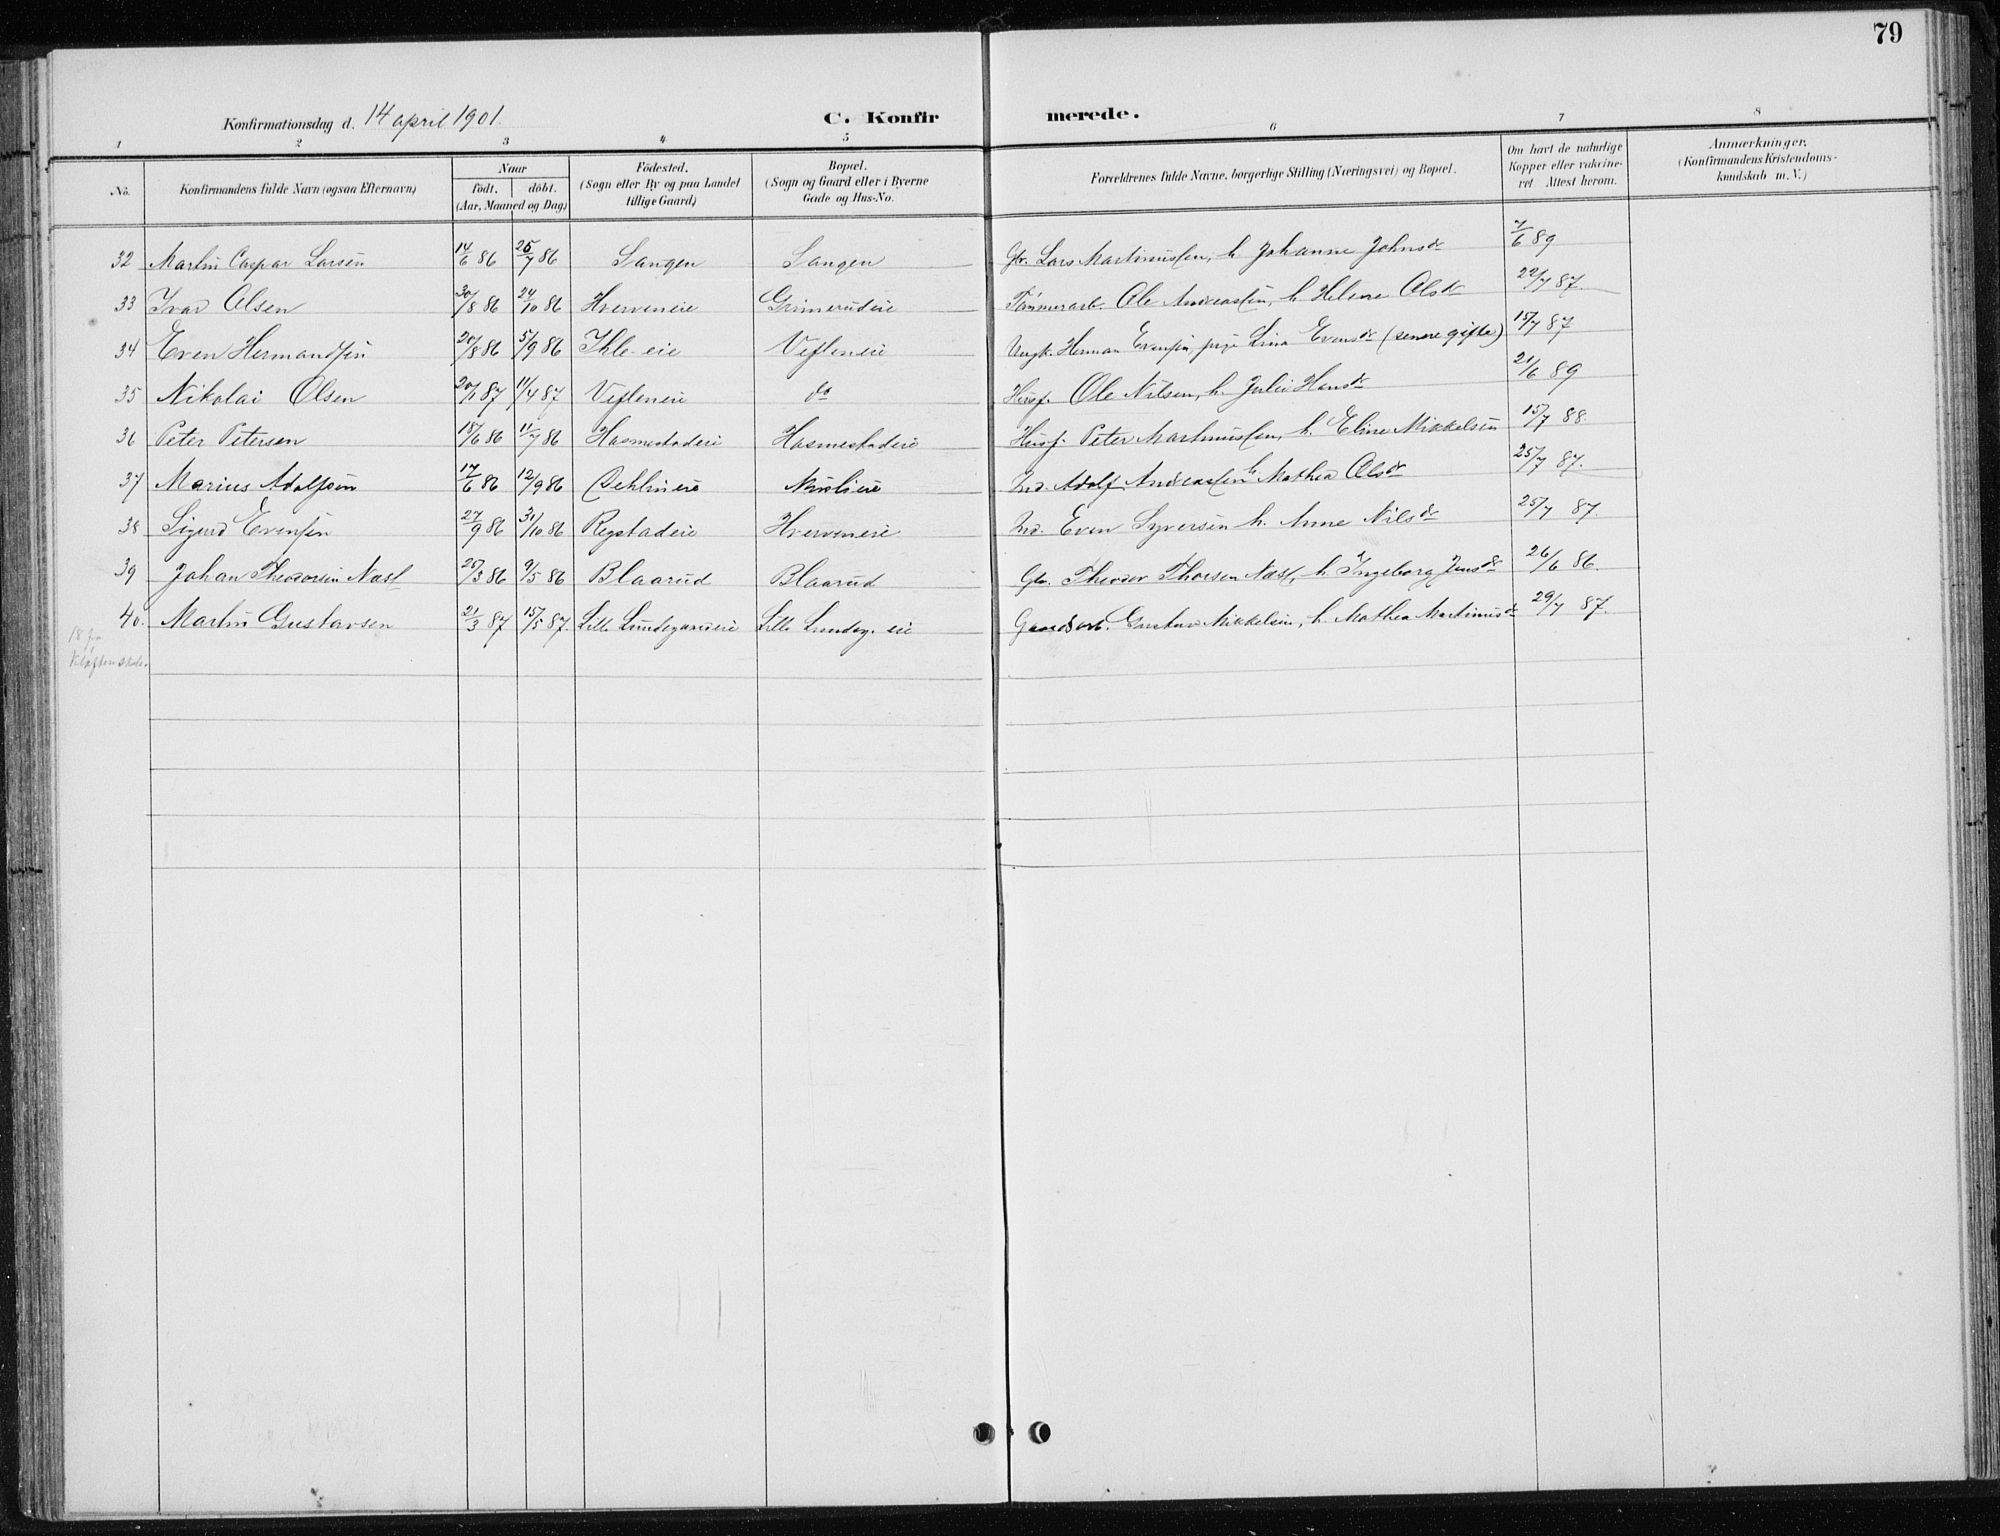 79
Konfirmationsdag d. 14 april 1901. C. Konfirmerede.
1 2 3 4 5 6 7 8
No. Konfirmandens fulde Navn (ogsaa Efternavn) Naar født. døbt. (Aar, Maaned og Dag) Födested. (Sogn eller By og paa Landet tillige Gaard) Bopæl. (Sogn og Gaard eller i Byerne Gade og Hus-No. Forældrenes fulde Navne, borgerlige Stilling (Næringsvei) og Bopæl. Om havt de naturlige Kopper eller vakcineret. Attest herom. Anmærkninger. (Konfirmandens Kristendomskundskab m. V.)
32 Martin Caspar Larsen 14/6 86 25/7 86 Sangen Sangen Gbr. Lars Martinussen, h. Johanne Johnsdr 7/6 89
33 Ivar Olsen 30/8 86 24/10 86 Hverveneie Grimerudeie Tømmerarb. Ole Andreassen, h. Helene Olsdr 22/7 87.
34 Even Hermandsen 20/8 86 5/9 86 Ihle-eie Vifleneie Ungk. Herman Evensen pige Lina Evensdr (senere gifte) 15/7 87
35 Nikolai Olsen 20/1 87 11/4 87 Vifleneie do Husf. Ole Nilsen, h. Julie Hansdr 21/6 89
36 Peter Petersen 15/6 86 11/7 86 Hasmestadeie Hasmestadeie Husf. Peter Martinussen, h. Eline Mikkelsen 15/7 88.
37 Marius Adolfsen 17/6 86 12/9 86 Ind. Adolf Andreassen h. Mathea Olsdr 25/7 87.
38 Sigurd Evensen 27/9 86 31/10 86 Rognstadeie Hverveneie Ind. Even Syversen h. Anne Nilsdr 25/7 87.
39 Johan Theodorsen Næsl 25/3 86 9/5 86 Blaarud Blaarud Gbr. Theodor Thorsen Næsl, h. Ingeborg Jensdr 26/6 86.
40. Martin Gustavsen 21/3 87 15/5 87. Lille Lundegaardeie Lille Lundeg. eie Gaardsarb. Gustav Mikkelsen, h. Mathea Martinusdr 29/7 87.
18 fra
Kløften skole